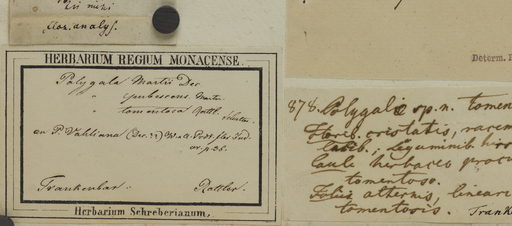 flor. analys.
HERBARIUM REGIUM MONACENSE.
Polygala Martii Dec
" pubescens Martii.
" tomentosa Rottl.
an P. Vahliana (Dec. ) W. et A. Prodr. flor. Ind.
or. p. 38.
Trankenbar. Rottler.
Herbarium Schreberianum.
Determ.
878. Polygala sp. n. tomen
Floribus cristatis, racem
lateb.; leguminib. hirs
Caule herbaceo procu
tomentoso.
Foliis alternis, lineari
tomentosis. Trank